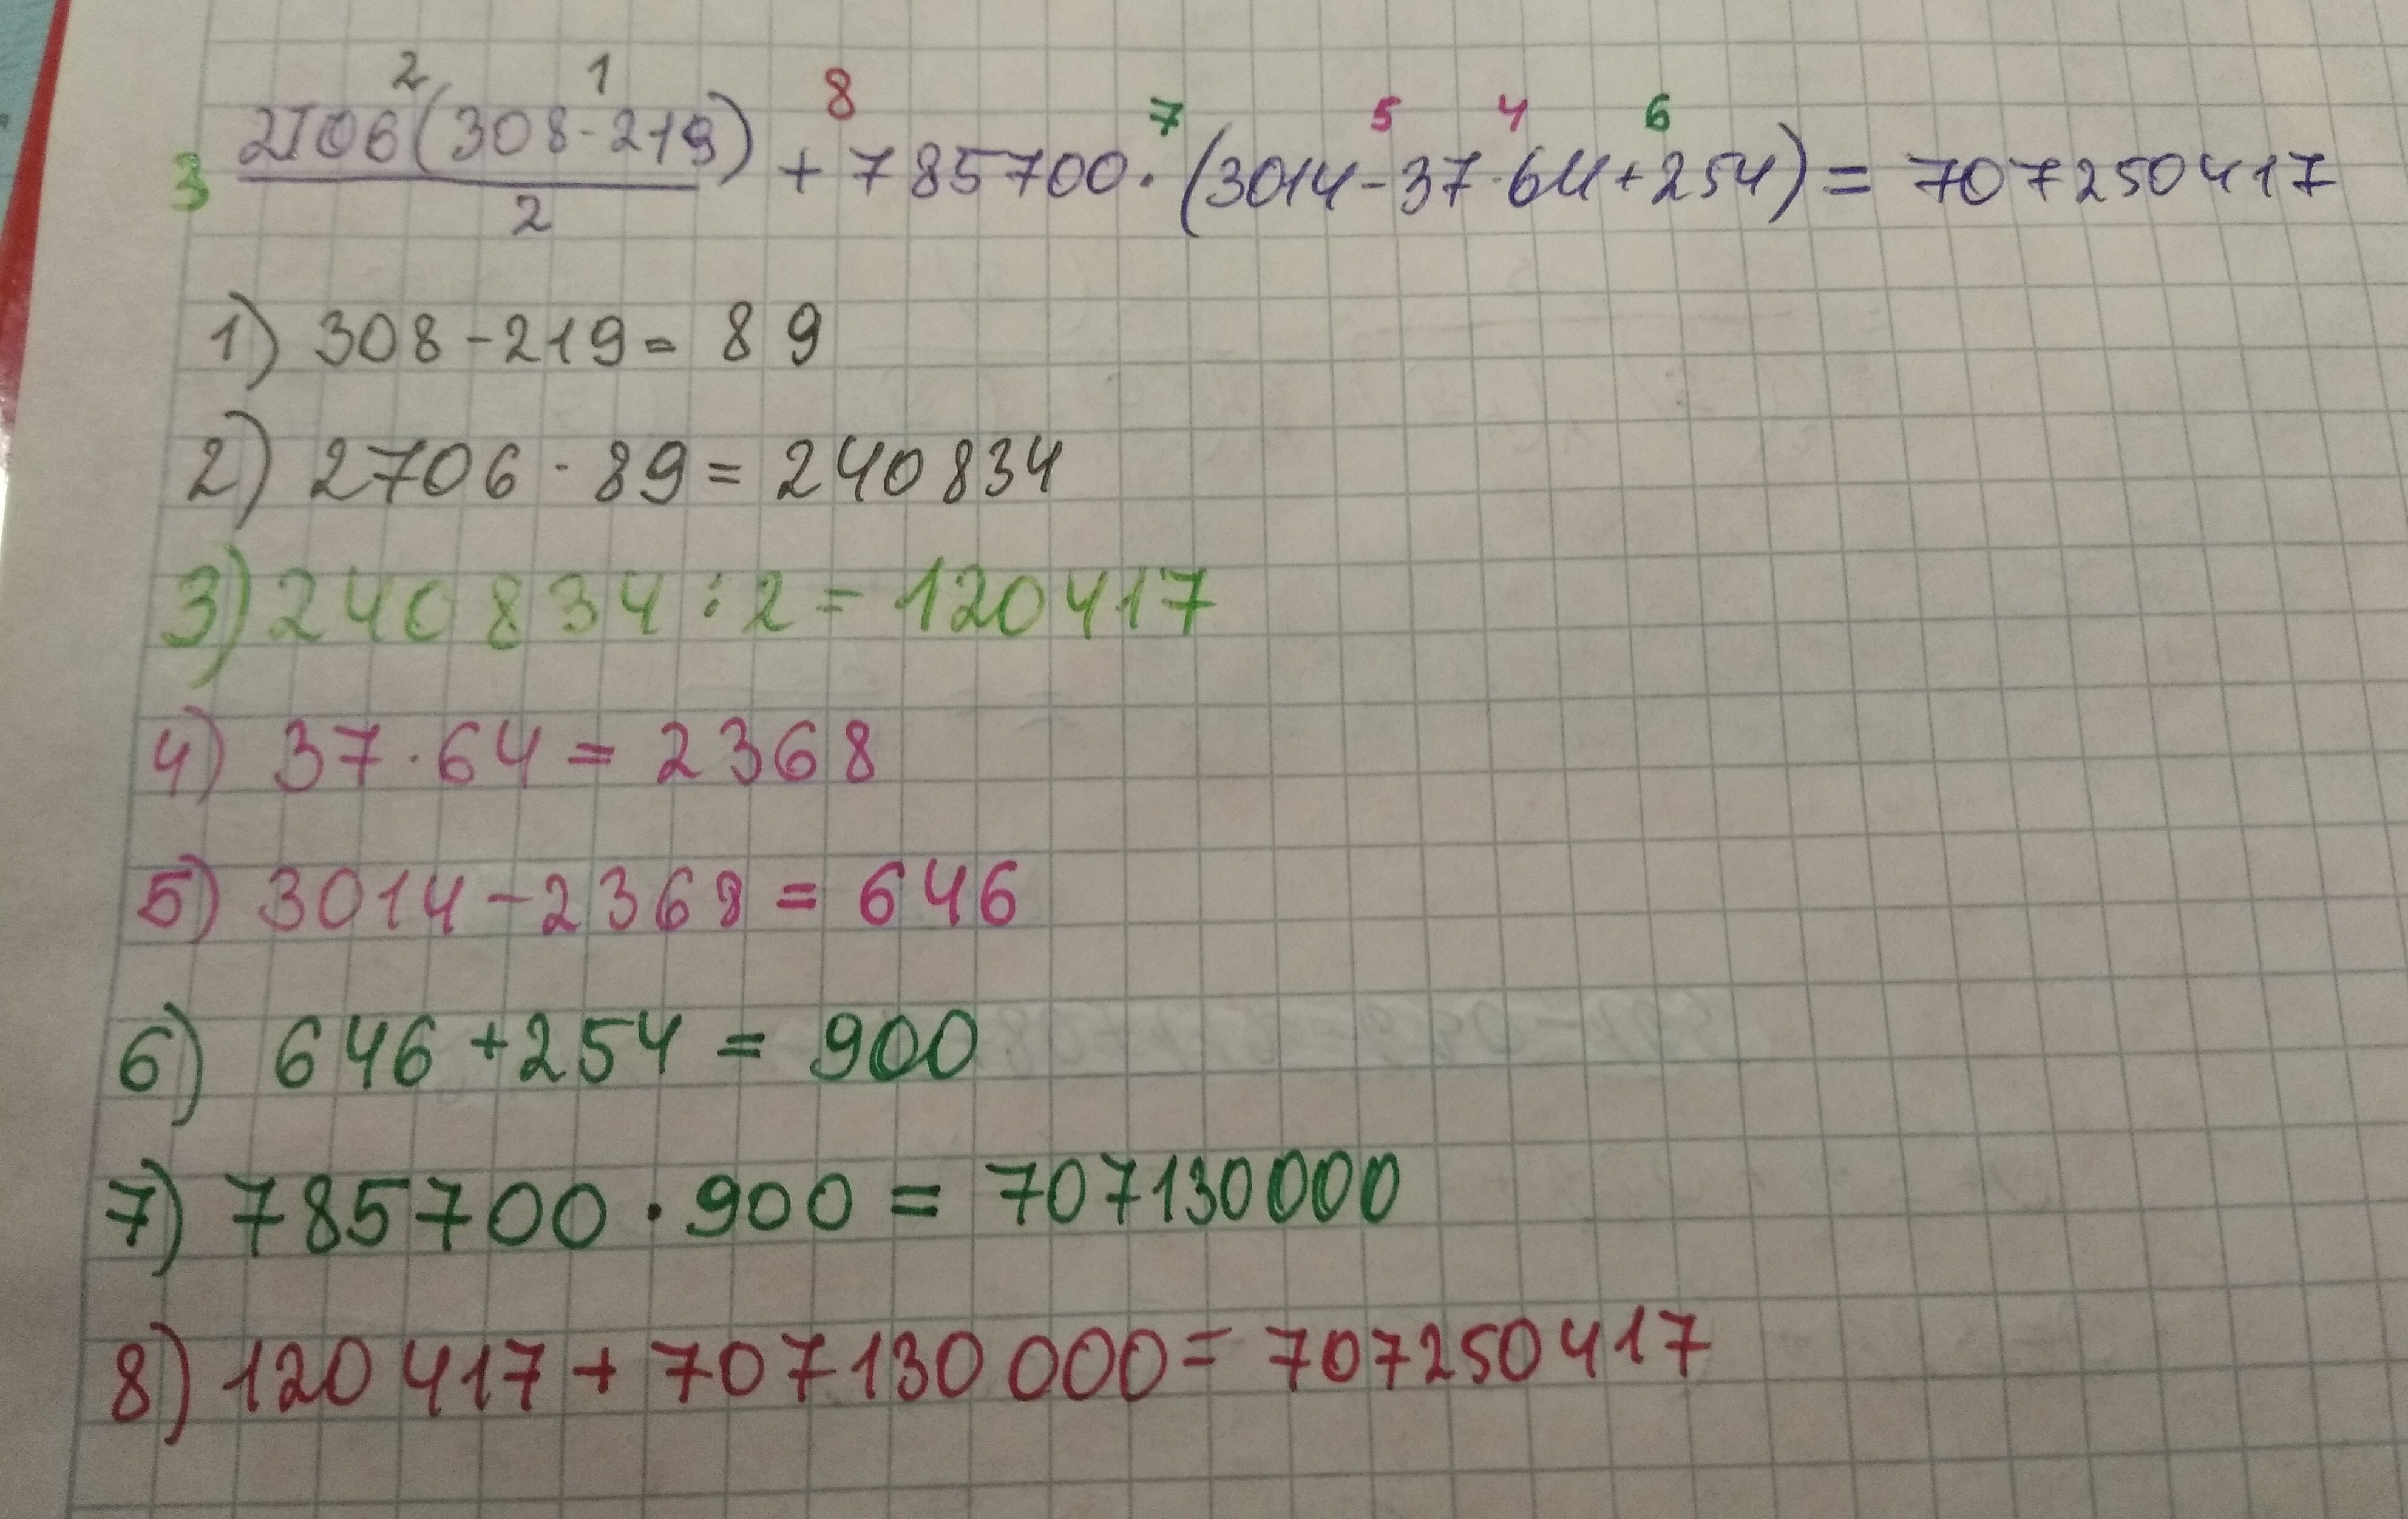 2 1 8 7 5 4 6
3 2706(308-219) + 785700·(3014-37·64+254)= 707250417
2
1) 308-219= 89
2) 2706·89=240834
3) 240834:2=120417
4) 37·64=2368
5) 3014-2368=646
6) 646+254=900
7) 785700·900=707130000
8) 120417+707130000=707250417